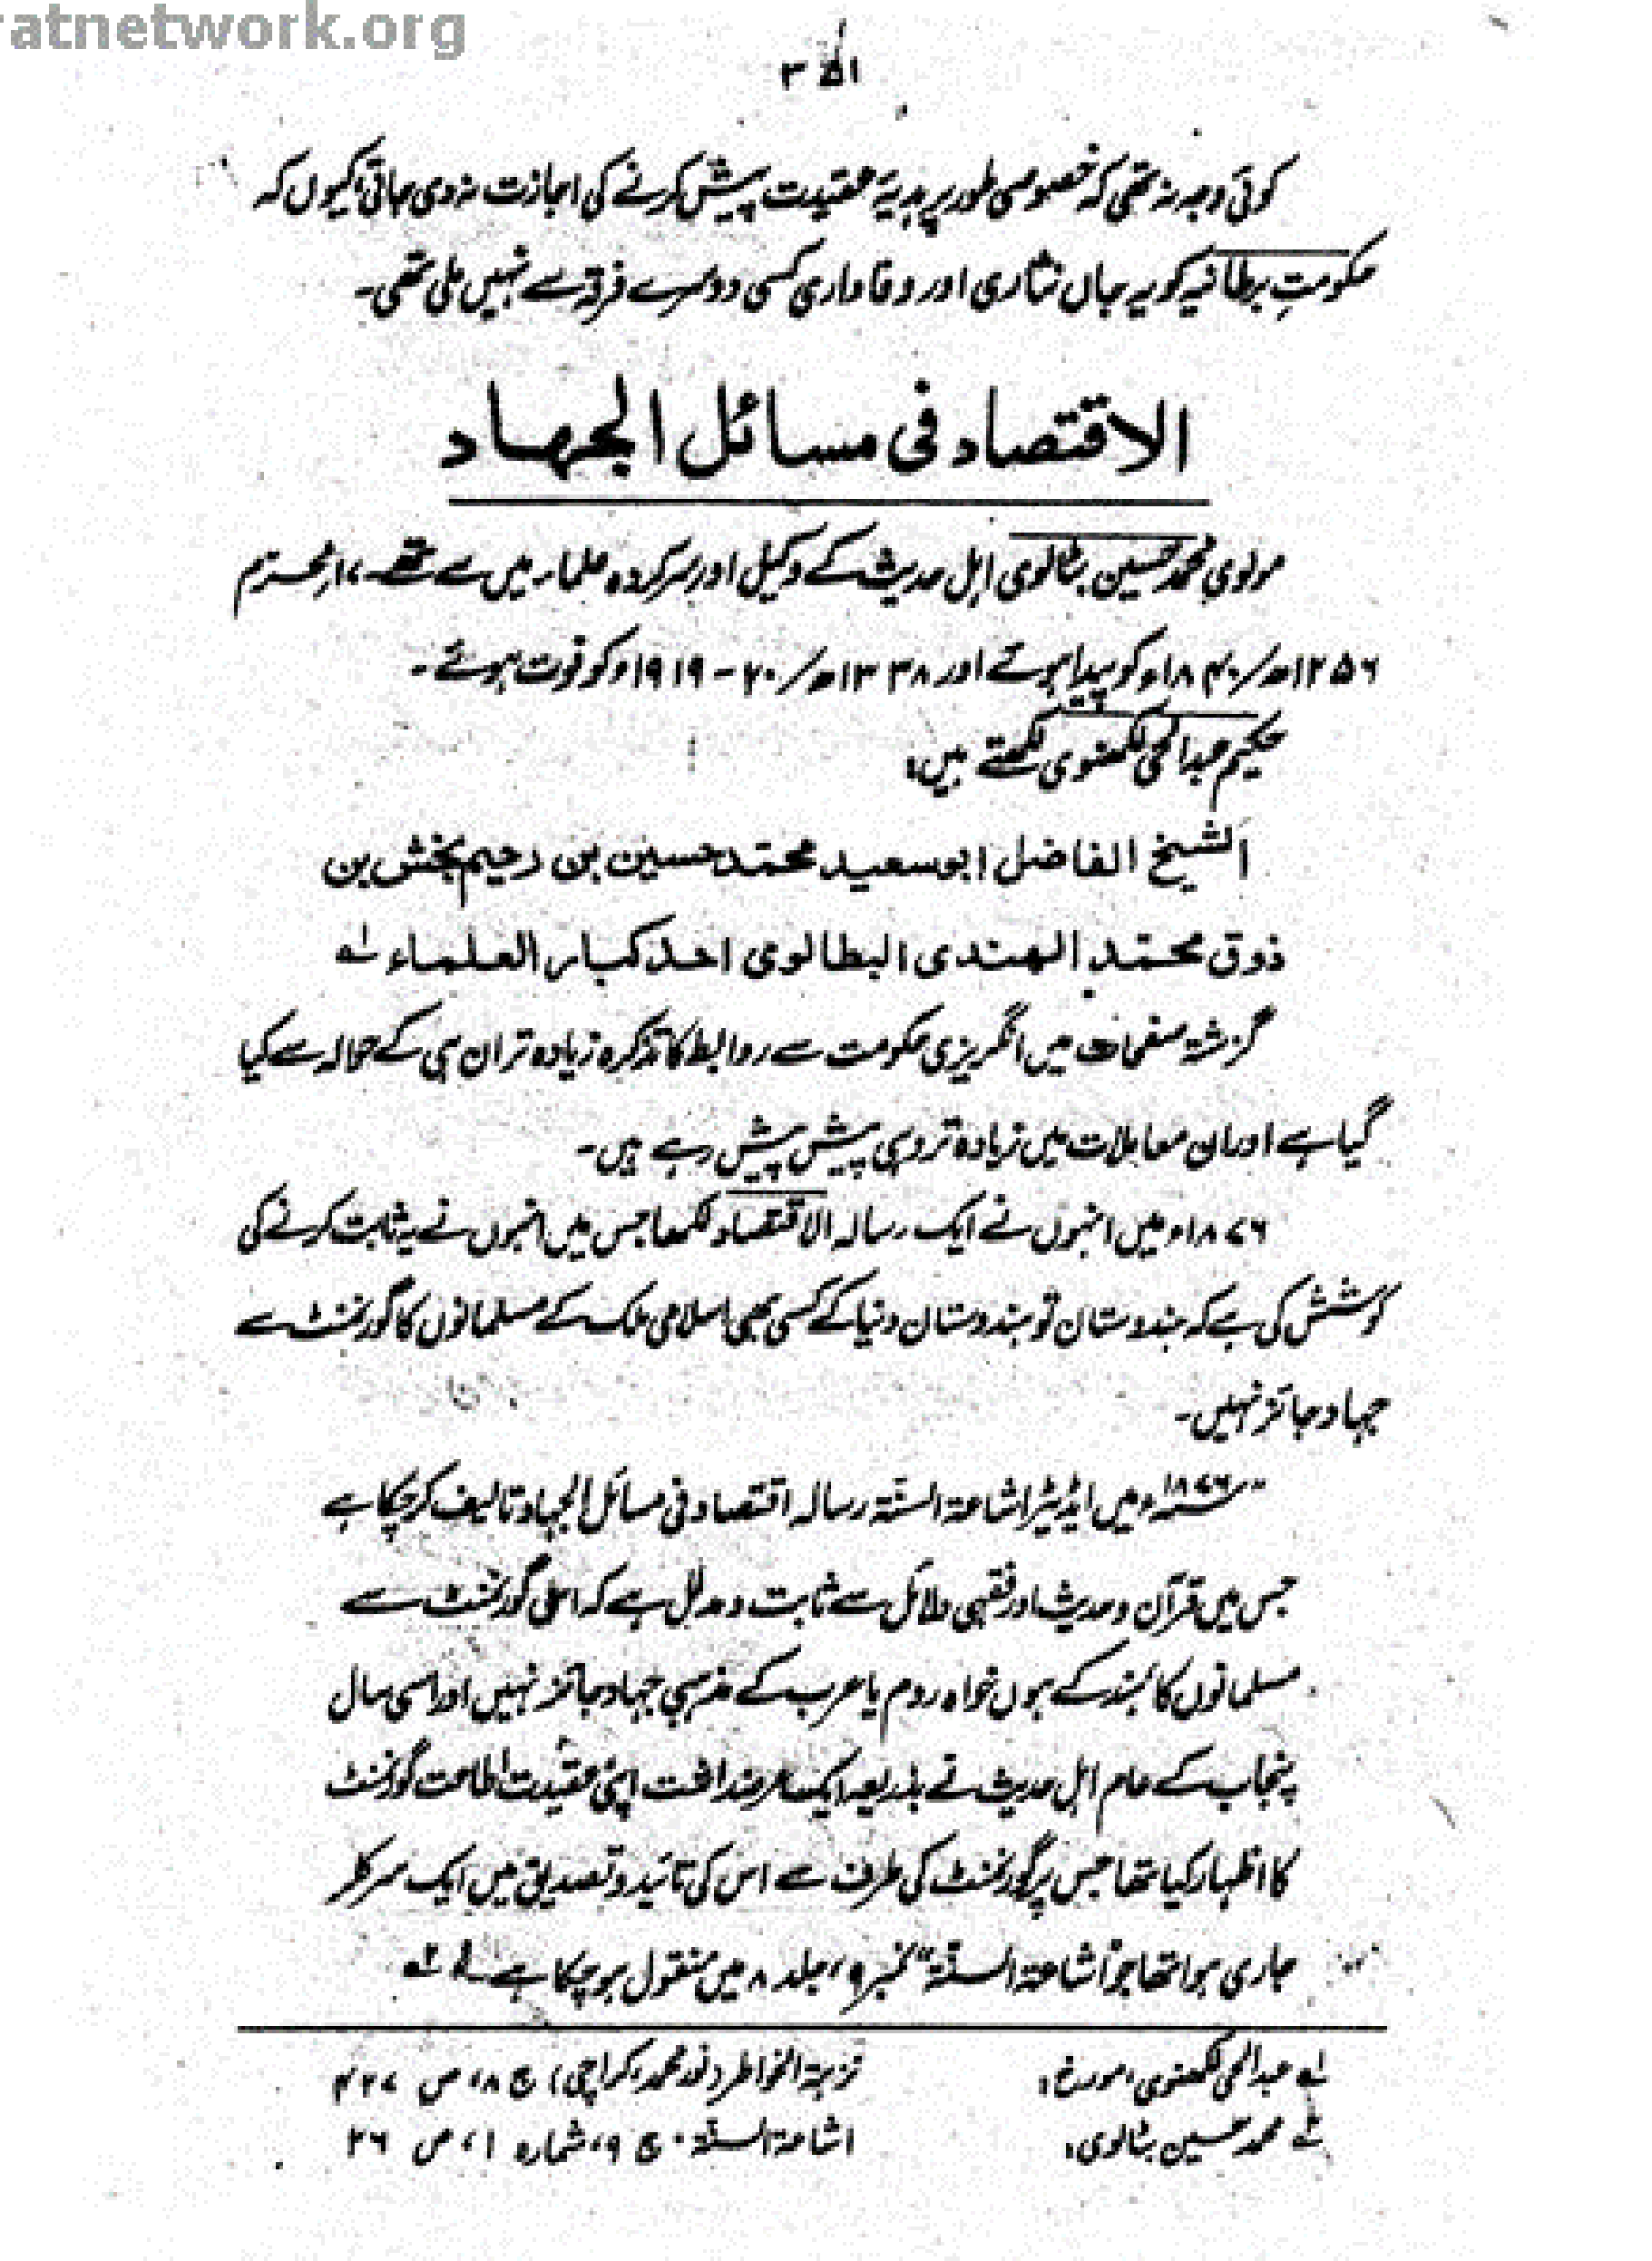 ratnetwork.org
کوئی وجہ نہ تھی کہ خصوصی طور پر ہدیۂ عقیدت پیش کرنے کی اجازت نہ دی جاتی، کیوں کہ
حکومتِ برطانیہ کو یہ جاں نثاری اور وفاداری کسی دوسرے فرقہ سے نہیں ملی تھی۔
الاقتصاد فی مسائل الجہاد
مولوی محمد حسین بٹالوی اہل حدیث کے وکیل اور سرکردہ علماء میں سے تھے۔ ۱۷ محرم
۱۲۵۶ھ/۱۸۴۰ء کو پیدا ہوئے اور ۱۳۳۸ھ/۲۰-۱۹۱۹ء کو فوت ہوئے۔
حکیم عبدالحی لکھنوی لکھتے ہیں:
الشیخ الفاضل ابو سعید محمد حسین بن رحیم بخش بن
ذوق محمد الھندی البطالوی احد کبار العلماء ۱ے
گزشتہ صفحات میں انگریزی حکومت سے روابط کا تذکرہ زیادہ تر ان ہی کے حوالہ سے کیا
گیا ہے اور ان معاملات میں زیادہ تر وہی پیش پیش رہے ہیں۔
۱۸۷۶ء میں انہوں نے ایک رسالہ الاقتصاد لکھا جس میں انہوں نے یہ ثابت کرنے کی
کوشش کی ہے کہ ہندوستان تو ہندوستان دنیا کے کسی بھی اسلامی ملک کے مسلمانوں کا گورنمنٹ سے
جہاد جائز نہیں۔
"۱۸۷۶ء میں ایڈیٹر اشاعۃ السنۃ رسالہ اقتصاد فی مسائل الجہاد تالیف کر چکا ہے
جس میں قرآن و حدیث اور فقہی دلائل سے ثابت و مدلل ہے کہ اس گورنمنٹ سے
مسلمانوں کا ہند کے ہوں خواہ روم یا عرب کے مذہبی جہاد جائز نہیں اور اسی سال
پنجاب کے عام اہل حدیث نے بذریعہ ایک عرضداشت اپنی عقیدت اطاعت گورنمنٹ
کا اظہار کیا تھا جس پر گورنمنٹ کی طرف سے اس کی تائید و تصدیق میں ایک سرکلر
جاری ہوا تھا جو اشاعۃ السنۃ" نمبر ۹، جلد ۸ میں منقول ہو چکا ہے ۲ے
۱ے عبدالحی لکھنوی، مورخ: نزہۃ الخواطر (نور محمد، کراچی) ج ۸، ص ۴۲۷
۲ے محمد حسین بٹالوی: اشاعۃ السنۃ ج ۹، شمارہ ۱، ص ۲۶